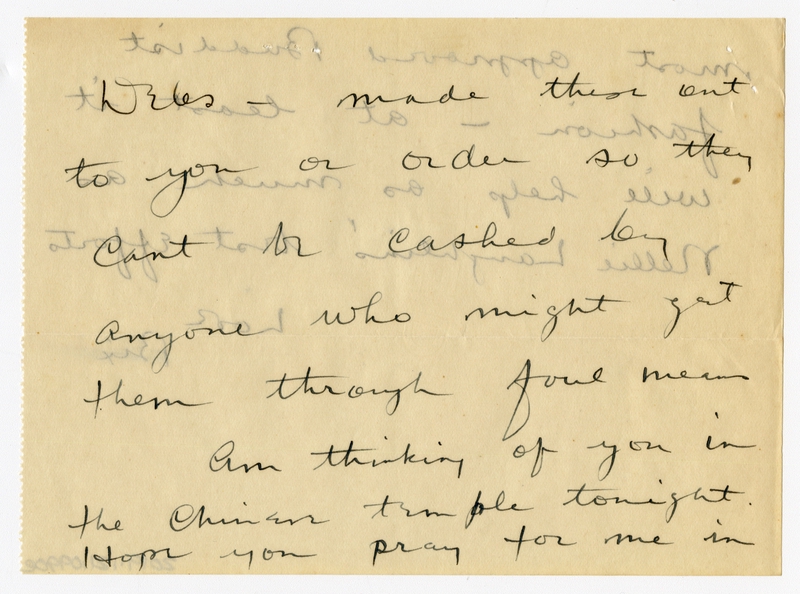 made these out
to you or order so they
Cant be cashed by
anyone who might get
them through foul means
Am thinking of you in
the Chinese temple tonight.
Hope you pray for me in